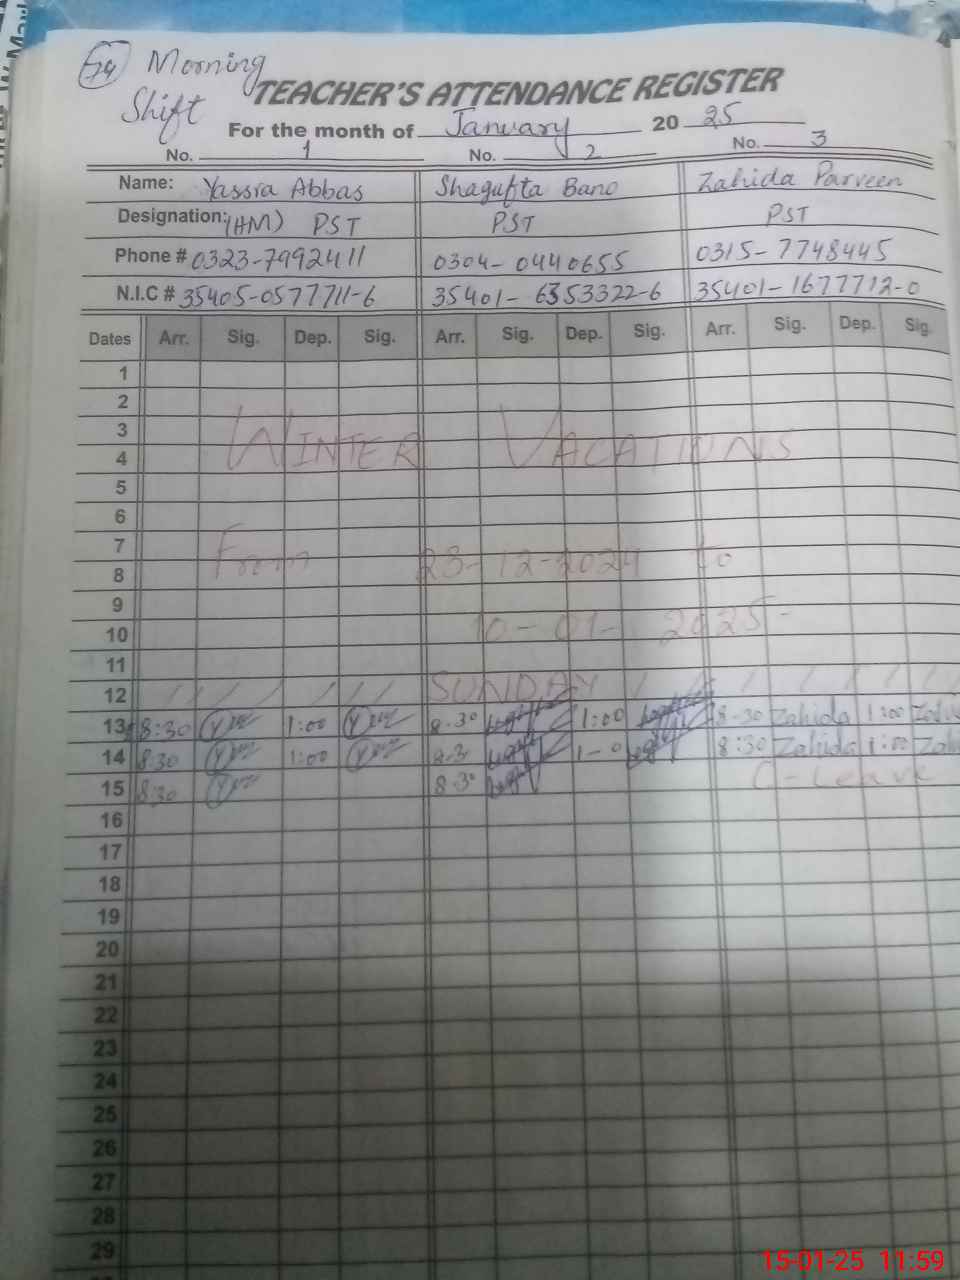 74 Morning
Shift
TEACHER'S ATTENDANCE REGISTER
For the month of January 20 25
No. 1 No. 2 No. 3
Name: Yassra Abbas Shagufta Bano Zahida Parveen
Designation: (HM) PST PST PST
Phone # 0323-7992411 0304-0440655 0315-7748445
N.I.C # 35405-0577711-6 35401-6353322-6 35401-1677712-0
Dates Arr. Sig. Dep. Sig. Arr. Sig. Dep. Sig. Arr. Sig. Dep. Sig.
1
2
3
WINTER VACATIONS
4
5
6
7
From 23-12-2024 to
8
9
10 10-01-2025-
11
12 SUNDAY
13 8:30 1:00 8.30 1:00 8-30 Zahida 1:00
14 8:30 1:00 8.3 1-0 8:30 Zahida 1:00
15 8:30 8.30 C-Leave
16
17
18
19
20
21
22
23
24
25
26
27
28
29
15-01-25 11:59